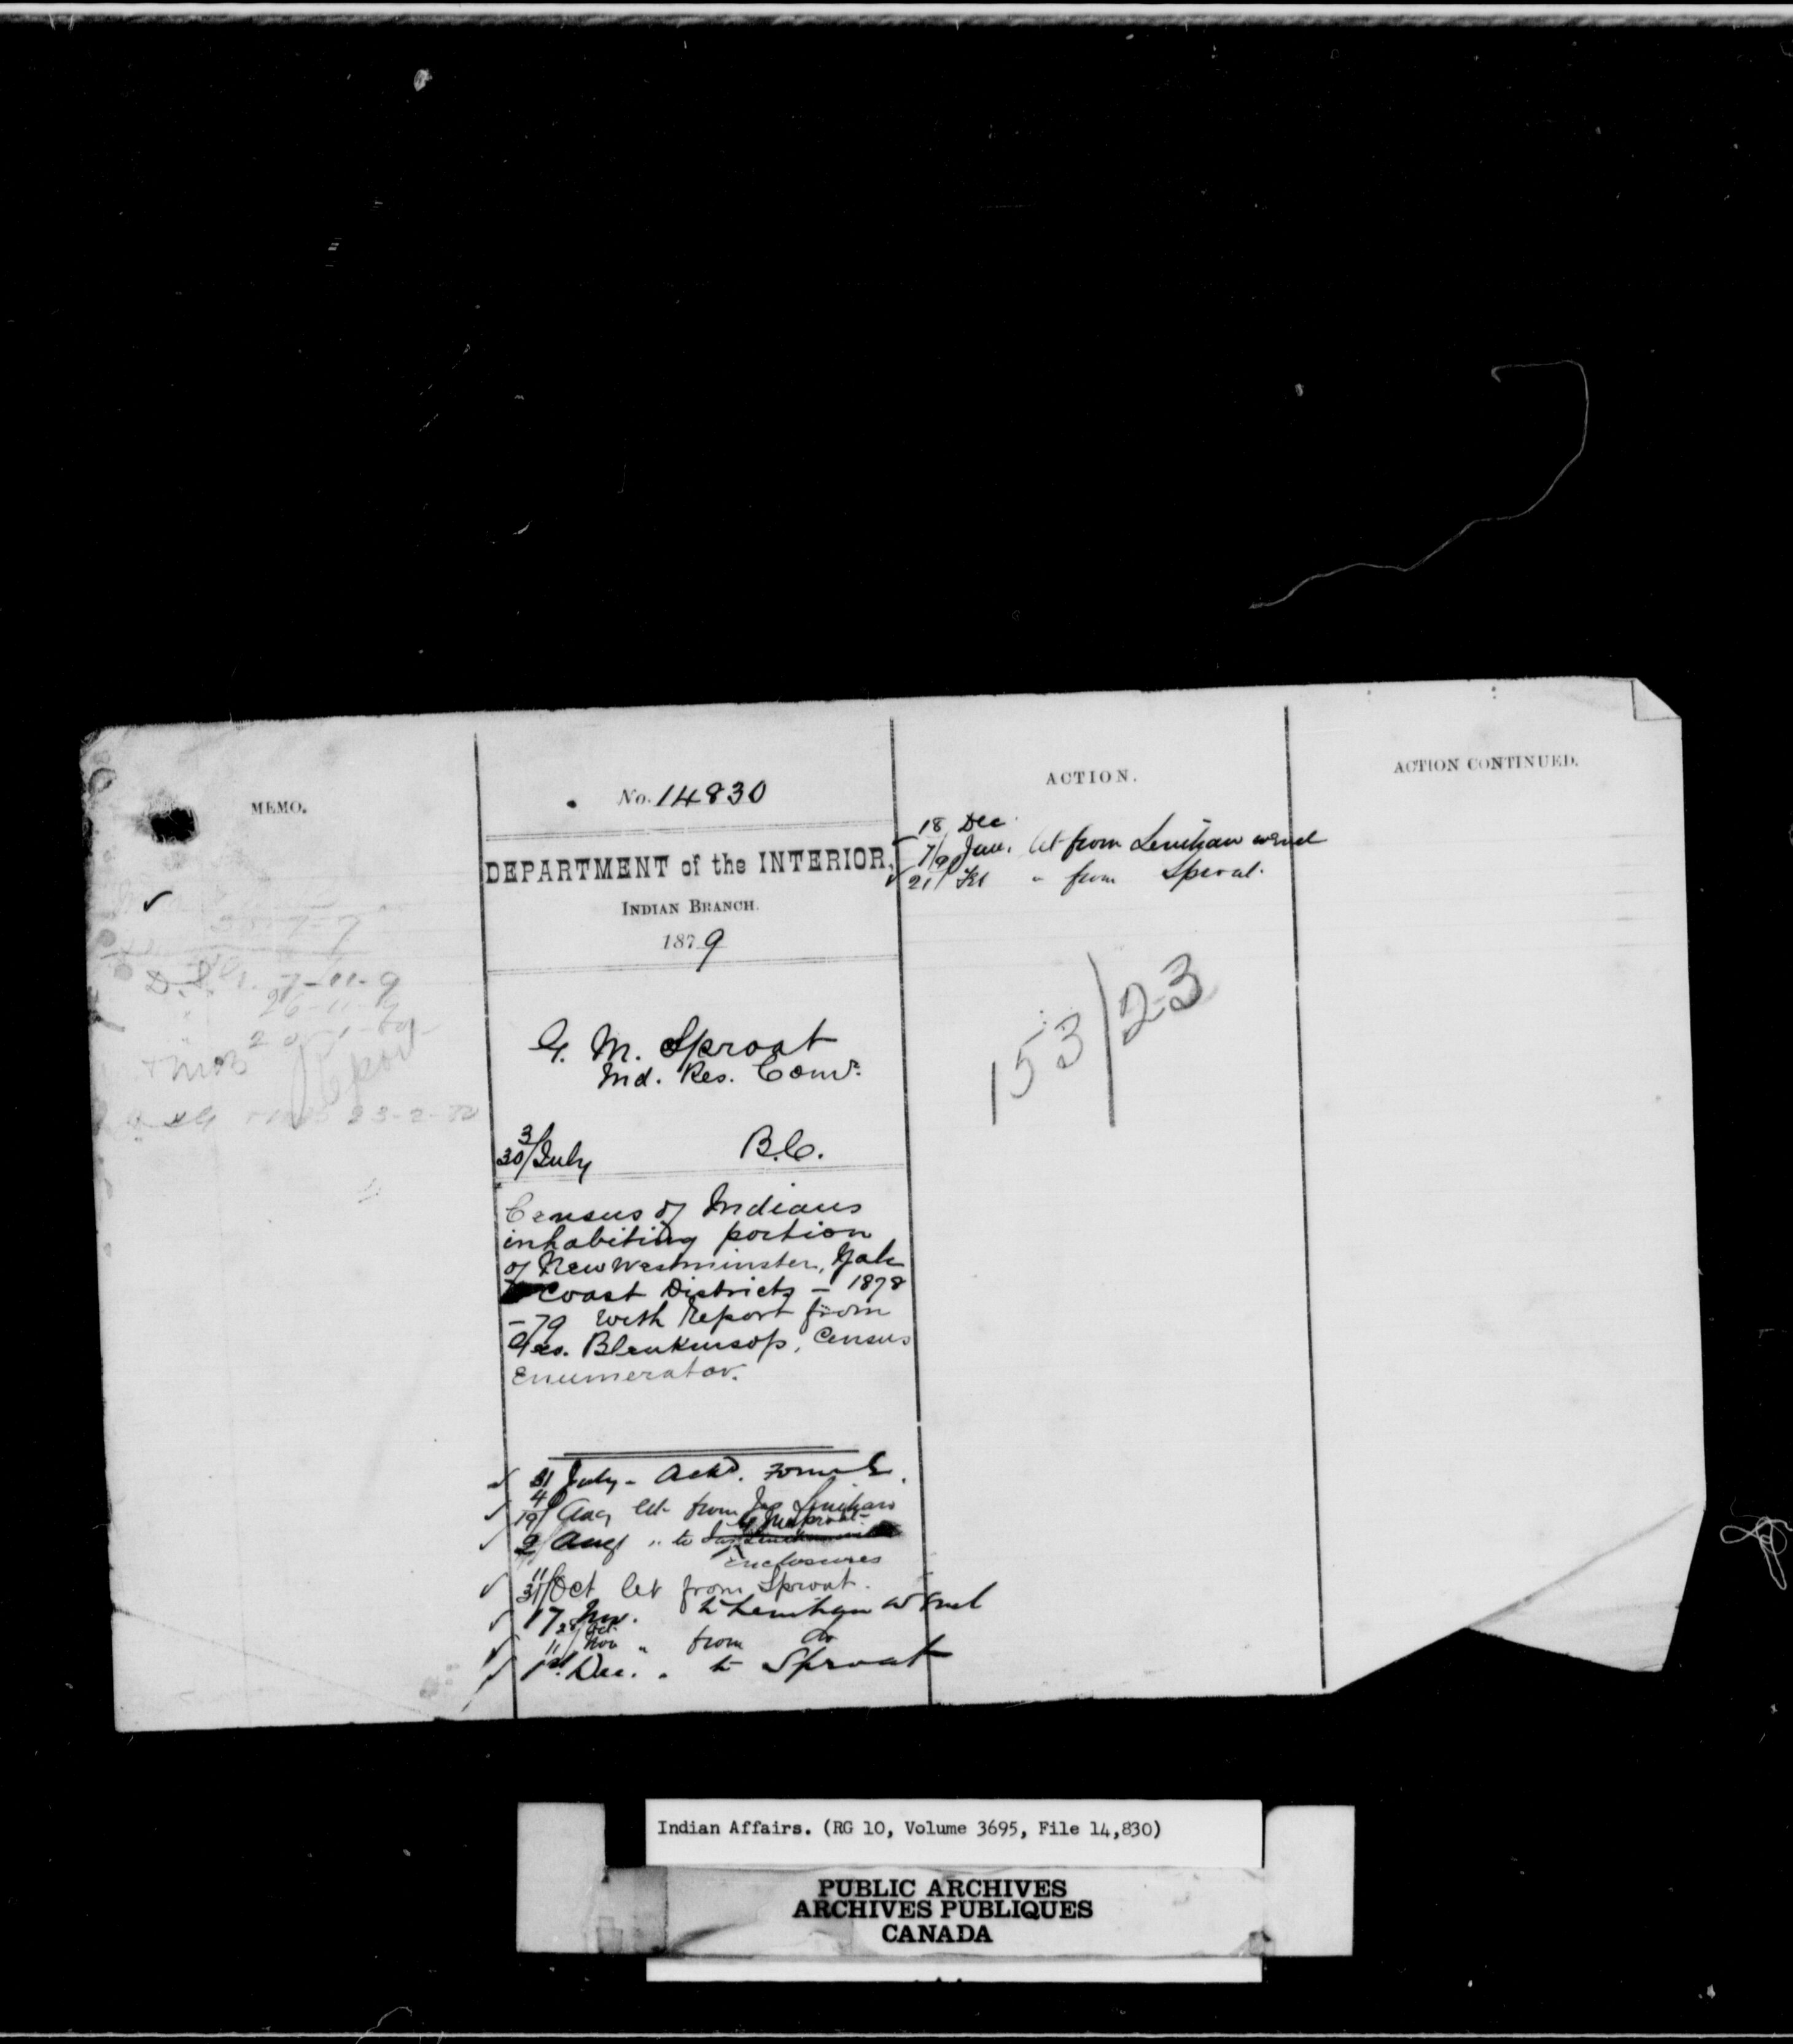 MEMO.
D.S.G. 7-11-9
26-11-9
Report
23-2-80
No. 14830
DEPARTMENT of the INTERIOR,
INDIAN BRANCH.
1879
G. M. Sproat
Ind. Res. Comr.
3/
30/July B.C.
Census of Indians
inhabiting portion
of New Westminster, Yale
Coast Districts – 1878
–79 with Report from
Geo. Blenkinsop, Census
Enumerator.
31 July – Ackd. Formal.
4
19/ Aug let from Jas Lenihan
G M Sproat
2/ Aug " to
Enclosures
11/
31/Oct let from Sproat.
17 Nov. " to Lenihan w encl
28/Oct
11/Nov " from do
1st Dec. " to Sproat
ACTION.
18 Dec
7/90 Jan. let from Lenihan w encl
21/ " from Sproat.
153/23
ACTION CONTINUED.
Indian Affairs. (RG 10, Volume 3695, File 14,830)
PUBLIC ARCHIVES
ARCHIVES PUBLIQUES
CANADA